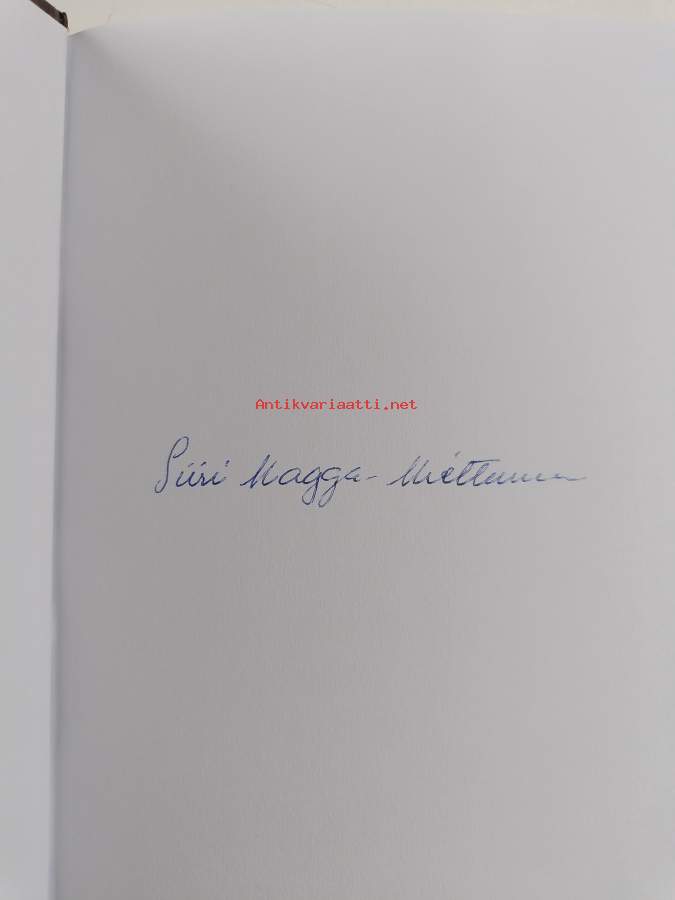 Antikvariaatti.net
Siiri Magga-Miettunen